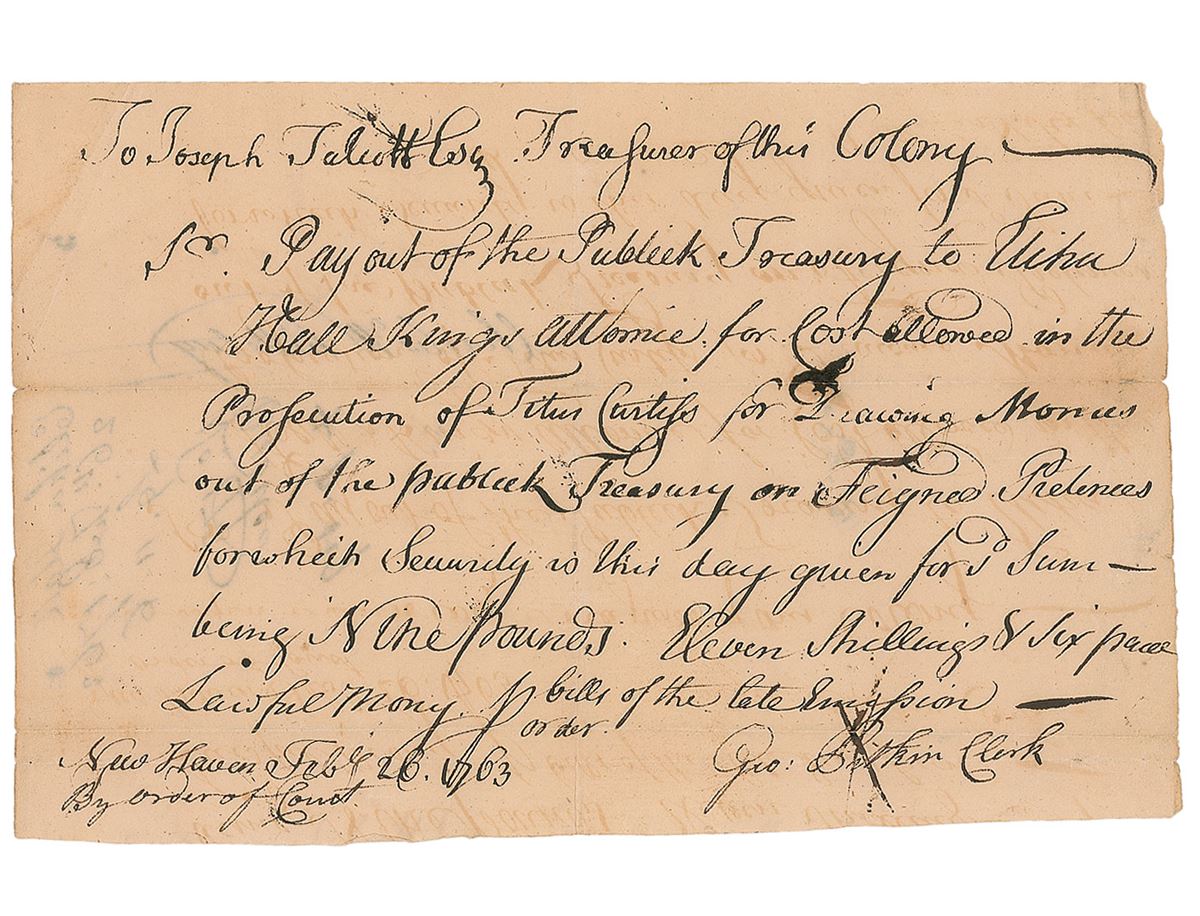 To Joseph Talcott Esq Treasurer of this Colony
Sr. Pay out of the Publick Treasury to Elihu
Hall Kings Attornie for Cost allowed in the
Prosecution of Titus Curtiss for Drawing Monies
out of the publick Treasury on Feigned Pretences
for which Security is this day given for sd Sum
being Nine pounds. Eleven Shillings & Six pence
Lawful Mony p bills of the late Emission
order.
New Haven Feby 26. 1763 Geo: Pitkin Clerk
By order of Court